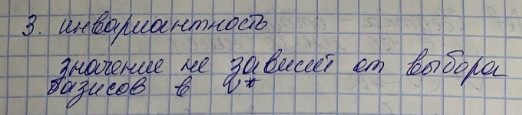 3. инвариантность
значение не зависит от выбора
базисов в